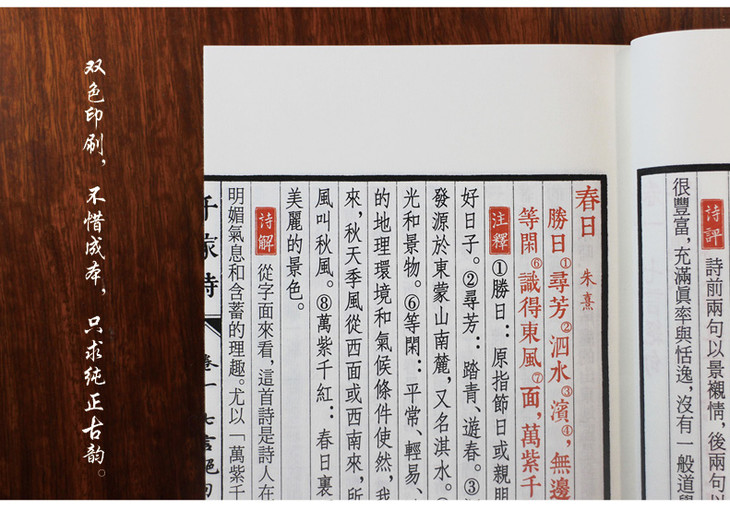 双色印刷，不惜成本，只求纯正古韵。
詩評 詩前兩句以景襯情，後兩句以
很豐富，充滿眞率與恬逸，沒有一般道學
春日 朱熹
勝日①尋芳②泗水③濱④，無邊
等閑⑥識得東風⑦面，萬紫千
注釋 ①勝日：原指節日或親朋
好日子。②尋芳：踏青、遊春。③
發源於東蒙山南麓，又名淇水。
光和景物。⑥等閑：平常、輕易、
的地理環境和氣候條件使然，我
來，秋天季風從西面或西南來，所
風叫秋風。⑧萬紫千紅：春日裏
美麗的景色。
詩解 從字面來看，這首詩是詩人在
明媚氣息和含蓄的理趣。尤以「萬紫千
千家詩 卷一 七言絕句